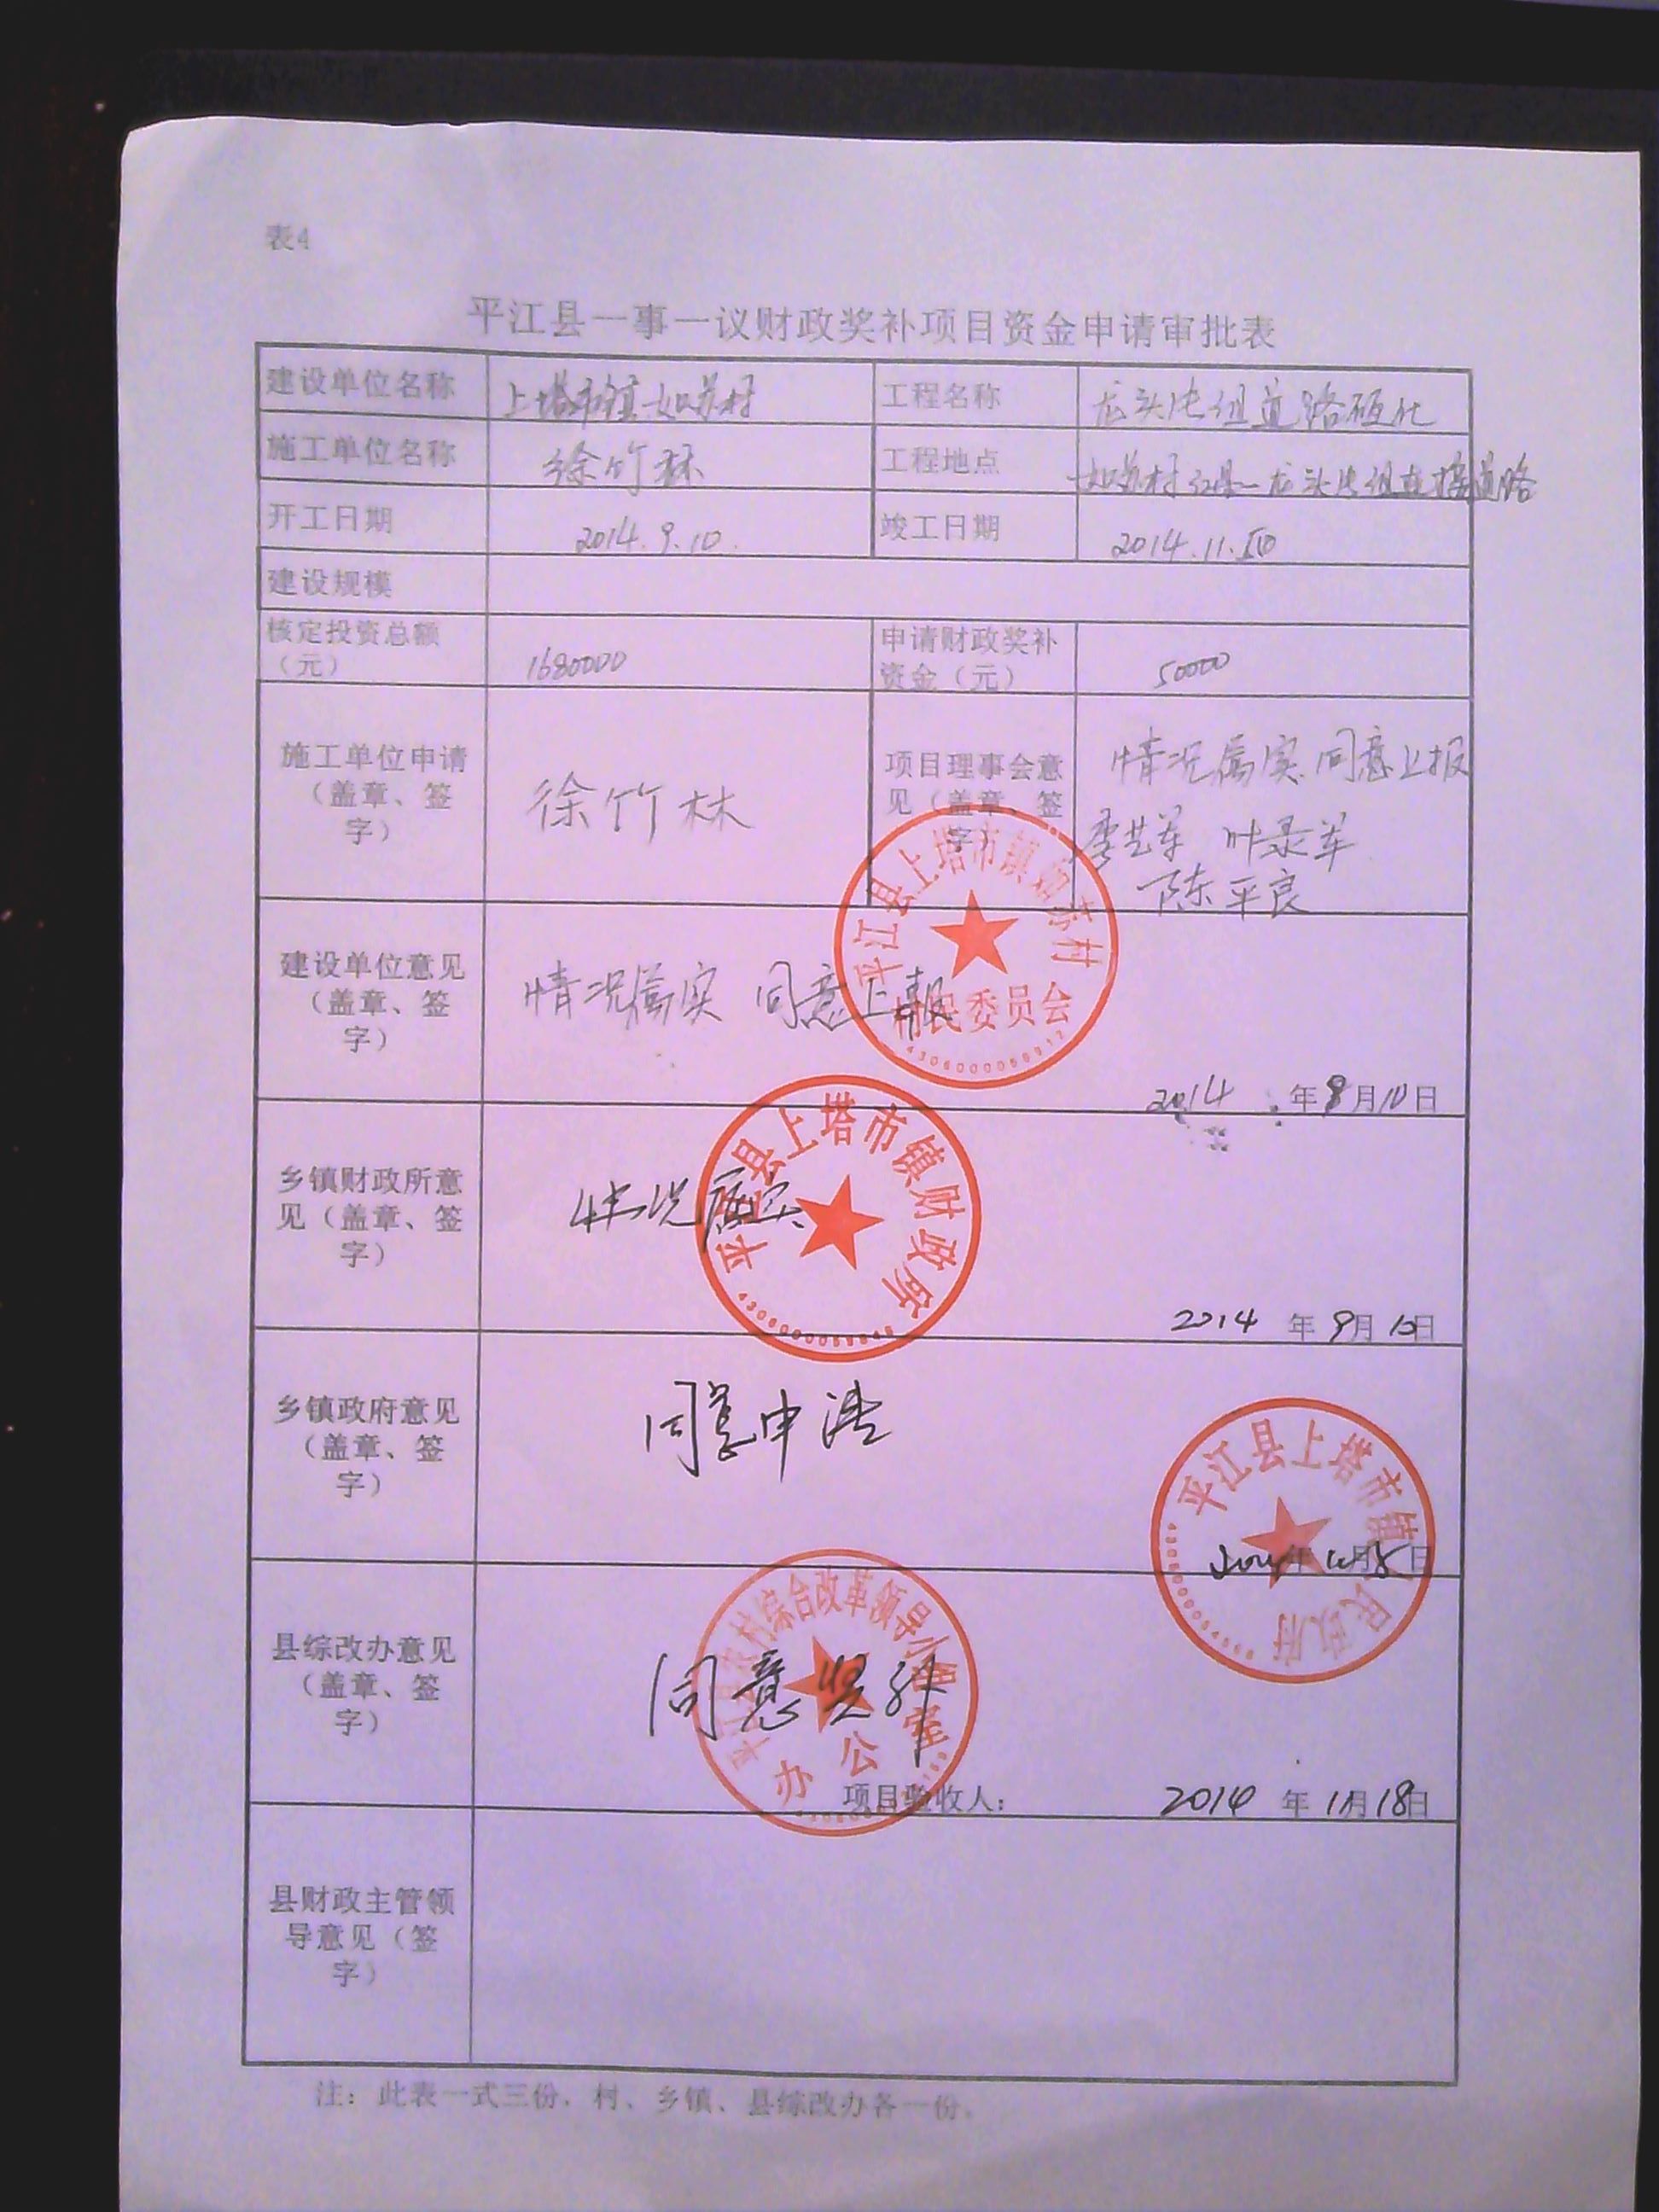 表4
平江县一事一议财政奖补项目资金申请审批表
建设单位名称 上塔市镇如苏村 工程名称 龙头 组道路硬化
施工单位名称 徐竹林 工程地点 如苏村 龙头 组连接道路
开工日期 2014.9.10. 竣工日期 2014.11.
建设规模
核定投资总额 申请财政奖补
（元） 1680000 资金（元） 50000
施工单位申请
（盖章、签
字） 徐竹林
项目理事会意
见（盖章、签
字）
情况属实.同意上报
李艺军 叶录军
陈平良
平江县上塔市镇如苏村
村民委员会
建设单位意见
（盖章、签
字）
情况属实 同意上报
2014 年 月10日
乡镇财政所意
见（盖章、签
字）
情况属实
平江县上塔市镇财政所
2014 年9月10日
乡镇政府意见
（盖章、签
字）
同意申请
平江县上塔市镇人民政府
年 月 日
县综改办意见
（盖章、签
字）
同意奖补
平江县农村综合改革领导小组
办公室
项目验收人： 2014 年11月18日
县财政主管领
导意见（签
字）
注：此表一式三份，村、乡镇、县综改办各一份。